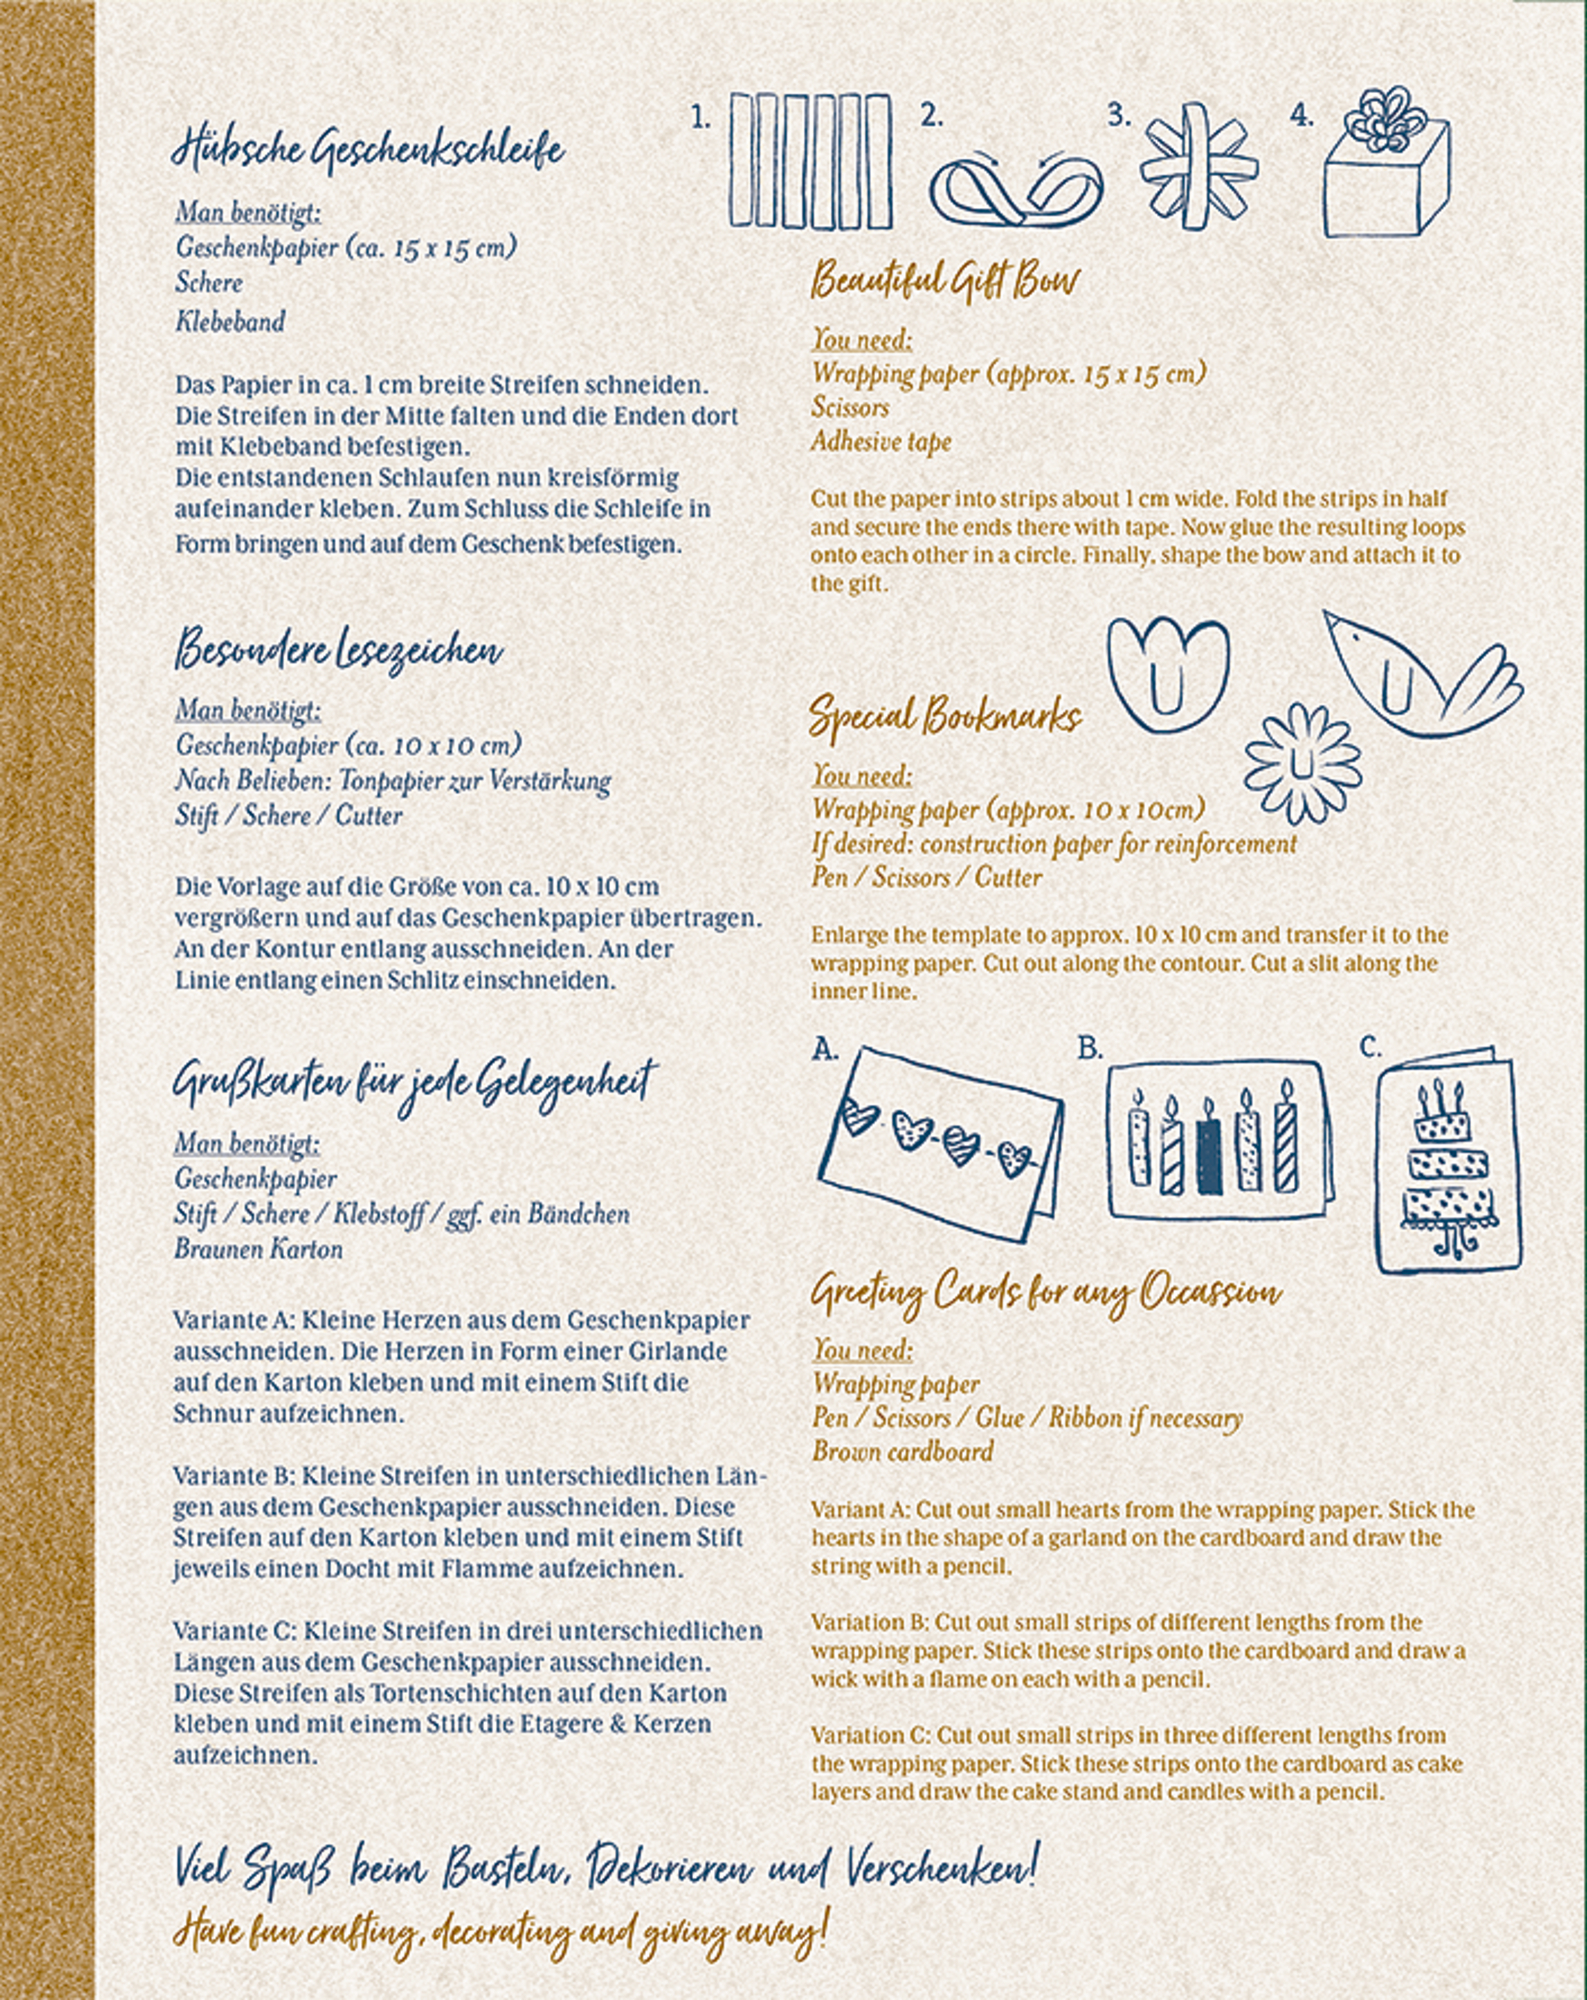 Hübsche Geschenkschleife
Man benötigt:
Geschenkpapier (ca. 15 x 15 cm)
Schere
Klebeband
Das Papier in ca. 1 cm breite Streifen schneiden.
Die Streifen in der Mitte falten und die Enden dort
mit Klebeband befestigen.
Die entstandenen Schlaufen nun kreisförmig
aufeinander kleben. Zum Schluss die Schleife in
Form bringen und auf dem Geschenk befestigen.
Besondere Lesezeichen
Man benötigt:
Geschenkpapier (ca. 10 x 10 cm)
Nach Belieben: Tonpapier zur Verstärkung
Stift / Schere / Cutter
Die Vorlage auf die Größe von ca. 10 x 10 cm
vergrößern und auf das Geschenkpapier übertragen.
An der Kontur entlang ausschneiden. An der
Linie entlang einen Schlitz einschneiden.
Grußkarten für jede Gelegenheit
Man benötigt:
Geschenkpapier
Stift / Schere / Klebstoff / ggf. ein Bändchen
Braunen Karton
Variante A: Kleine Herzen aus dem Geschenkpapier
ausschneiden. Die Herzen in Form einer Girlande
auf den Karton kleben und mit einem Stift die
Schnur aufzeichnen.
Variante B: Kleine Streifen in unterschiedlichen Län-
gen aus dem Geschenkpapier ausschneiden. Diese
Streifen auf den Karton kleben und mit einem Stift
jeweils einen Docht mit Flamme aufzeichnen.
Variante C: Kleine Streifen in drei unterschiedlichen
Längen aus dem Geschenkpapier ausschneiden.
Diese Streifen als Tortenschichten auf den Karton
kleben und mit einem Stift die Etagere & Kerzen
aufzeichnen.
1. 2. 3. 4.
Beautiful Gift Bow
You need:
Wrapping paper (approx. 15 x 15 cm)
Scissors
Adhesive tape
Cut the paper into strips about 1 cm wide. Fold the strips in half
and secure the ends there with tape. Now glue the resulting loops
onto each other in a circle. Finally, shape the bow and attach it to
the gift.
Special Bookmarks
You need:
Wrapping paper (approx. 10 x 10cm)
If desired: construction paper for reinforcement
Pen / Scissors / Cutter
Enlarge the template to approx. 10 x 10 cm and transfer it to the
wrapping paper. Cut out along the contour. Cut a slit along the
inner line.
A. B. C.
Greeting Cards for any Occassion
You need:
Wrapping paper
Pen / Scissors / Glue / Ribbon if necessary
Brown cardboard
Variant A: Cut out small hearts from the wrapping paper. Stick the
hearts in the shape of a garland on the cardboard and draw the
string with a pencil.
Variation B: Cut out small strips of different lengths from the
wrapping paper. Stick these strips onto the cardboard and draw a
wick with a flame on each with a pencil.
Variation C: Cut out small strips in three different lengths from
the wrapping paper. Stick these strips onto the cardboard as cake
layers and draw the cake stand and candles with a pencil.
Viel Spaß beim Basteln, Dekorieren und Verschenken!
Have fun crafting, decorating and giving away!